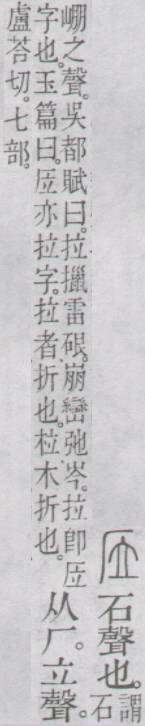 㕇 石聲也。謂石
𡹔之聲。吳都賦曰。拉擸雷硠。崩巒弛岑。拉卽㕇
字也。玉篇曰。㕇亦拉字。拉者折也。柆木折也。从厂。立聲。
盧荅切。七部。